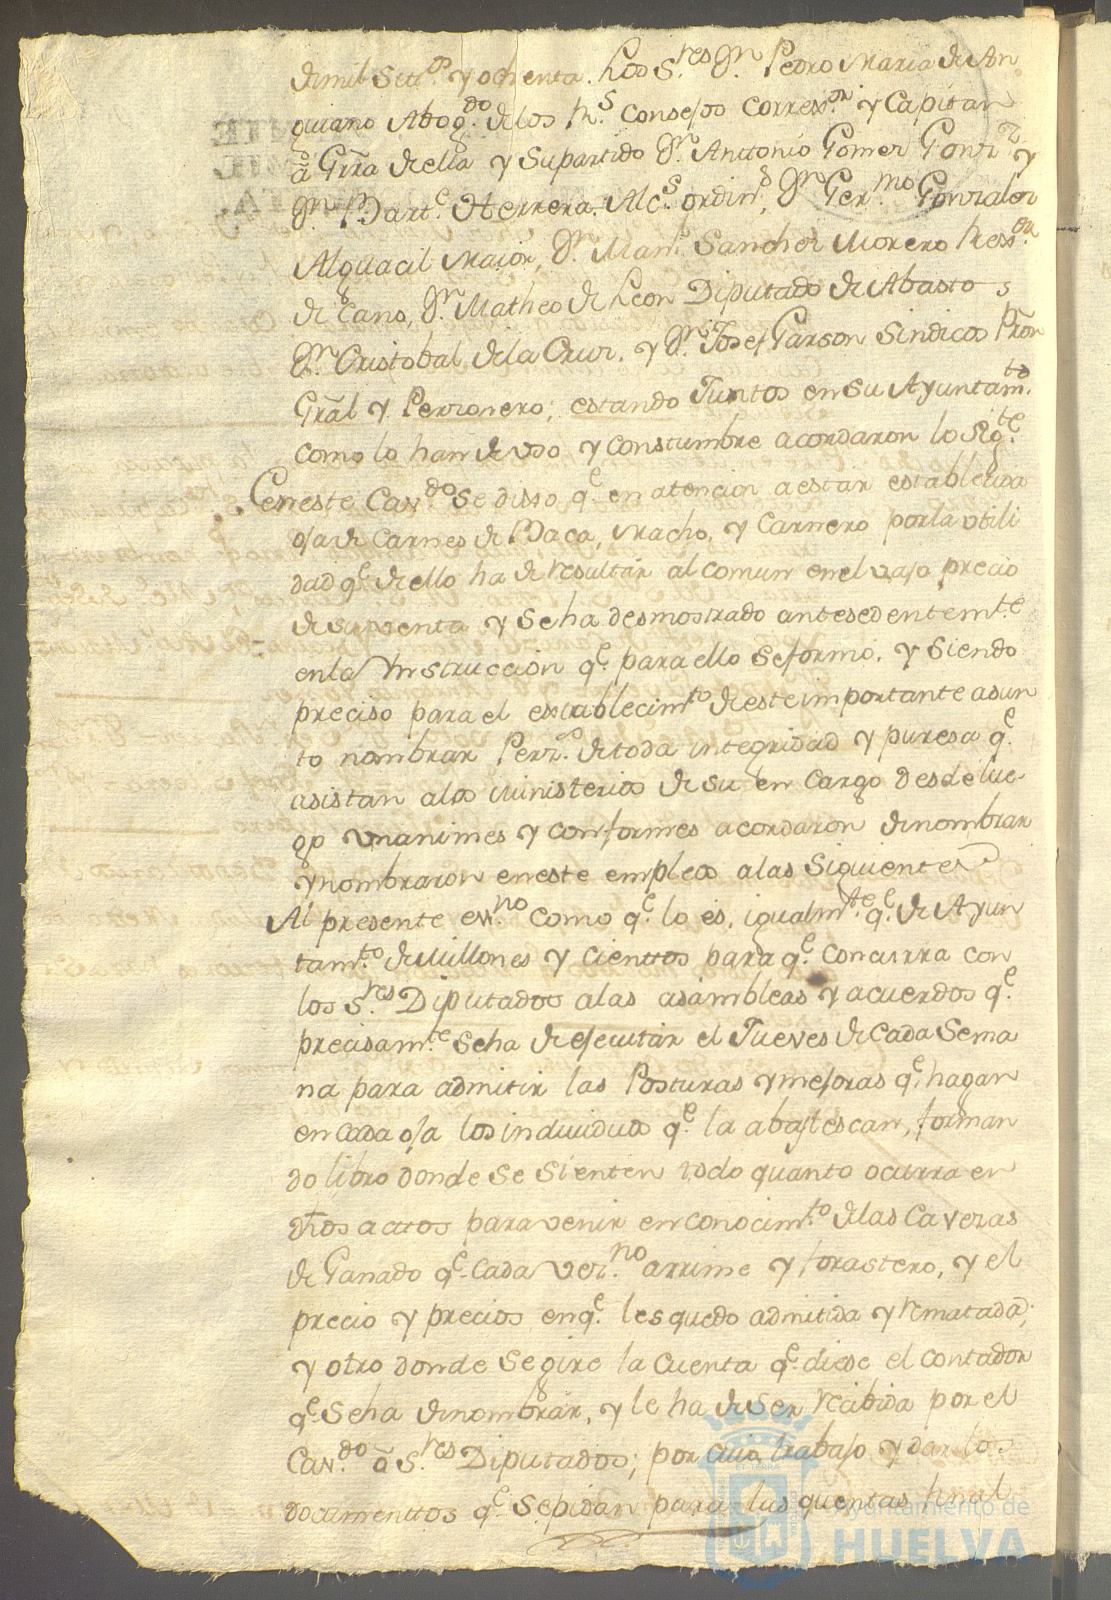 de mil Setos. y ochenta. Los S.res Dn. Pedro Maria de An
guiano Abogdo. de los Rs. Consejos Correxor. y Capitan
à Grra de ella y su partido Dn. Anttonio Gomez Gonz y
Dn. Barte. Herrera. Alcs. ordins, Dn. Germo Gonzalez
Alguacil Maior, Dn. Manl. Sanchez Morero Rexor.
de Cano, Dn. Matheo de Leon Diputado de Abastos
Dn. Cristobal de la Cruz. y Dn. Josef Garson Sindicos Pron
Gral y Perzonero; estando Juntos en su Ayuntamto.
como lo han de vso y constumbre acordaron lo sigte.
En este Cavdo se dixo qe. en atencion a estar establecida
oja de Carnes de Baca, Macho, y Carnero por la vtili
dad qe. de ello ha de resultar al comun en el vajo precio
de su venta y se ha desmostrado antesedentemte
en la Ynstruccion qe. para ello se formó, y siendo
preciso para el establecimto de este importante asun
to nombrar Perzs. de toda integridad y puresa qe.
asistan a los ministerios de su en cargo desde lue
go vnanimes y conformes acordaron de nombrar
y nombraron en este empleos a las siguientes
Al presente exno. como qe. lo es, igualmte. qe. de Ayun
tamto. de Millones y cienttos para qe. concurra con
los S.res Diputados a las asambleas y acuerdos qe.
precisamte se ha de ejecutar el Jueves de cada sema
na para admitir las Posturas y mejoras qe. hagan
en cada oja los individuos qe. la abastescan, forman
do libro donde se sienten todo quanto ocurra en
dhos acttos para venir en conocimto. de las Cavezas
de Ganado qe. cada vezno. arrime y forastero, y el
precio y precios en qe. les quedo admitida y rematada;
y otro donde se gire la cuenta qe. diese el contador
qe. se ha de nombrar, y le ha de ser recibida por el
Cavdo. o S.res Diputados; por cuio trabajo y dar los
documenttos qe. se pidan para las quentas final
Ayuntamiento de
HUELVA